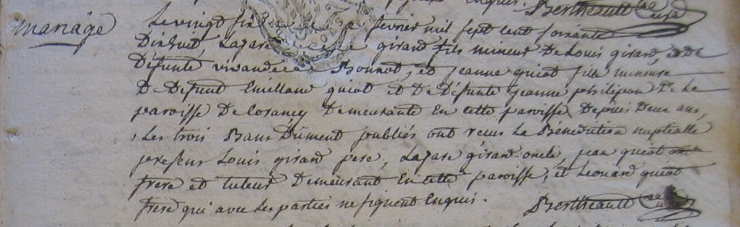 Bertheault curé
mariage
Le vingt fevrier mil sept cent soixante
Dixhuit, Lazare girard fils mineur de Louis girard, et De
Défunte Bonnot, et jeanne quiot fille mineure
De Defunt Emilland quiot et De Défunte jeanne De La
paroisse De Demeurante En cette paroisse Depuis Deux ans,
Les trois Bans Dûment publiés ont recus La Bénédiction nuptialle
presens Louis girard pere, Lazare girard oncle, jean quiot
frere et tuteur Demeurant En cette paroisse, et Leonard quiot
frere qui avec Les parties ne signent Enquis. Bertheault curé